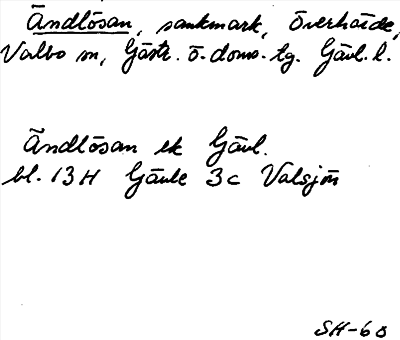 Ändlösan, sankmark, Överhärde,
Valbo sn, Gästr. ö. doms. tg. Gävl. l.
Ändlösan ek Gävl.
bl. 13H Gävle 3c Valsjön
SH-68